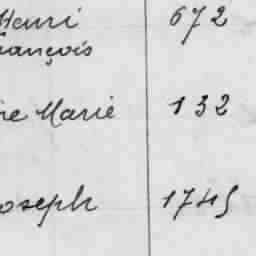 Henri 672
rançois
re Marie 132
oseph 1745